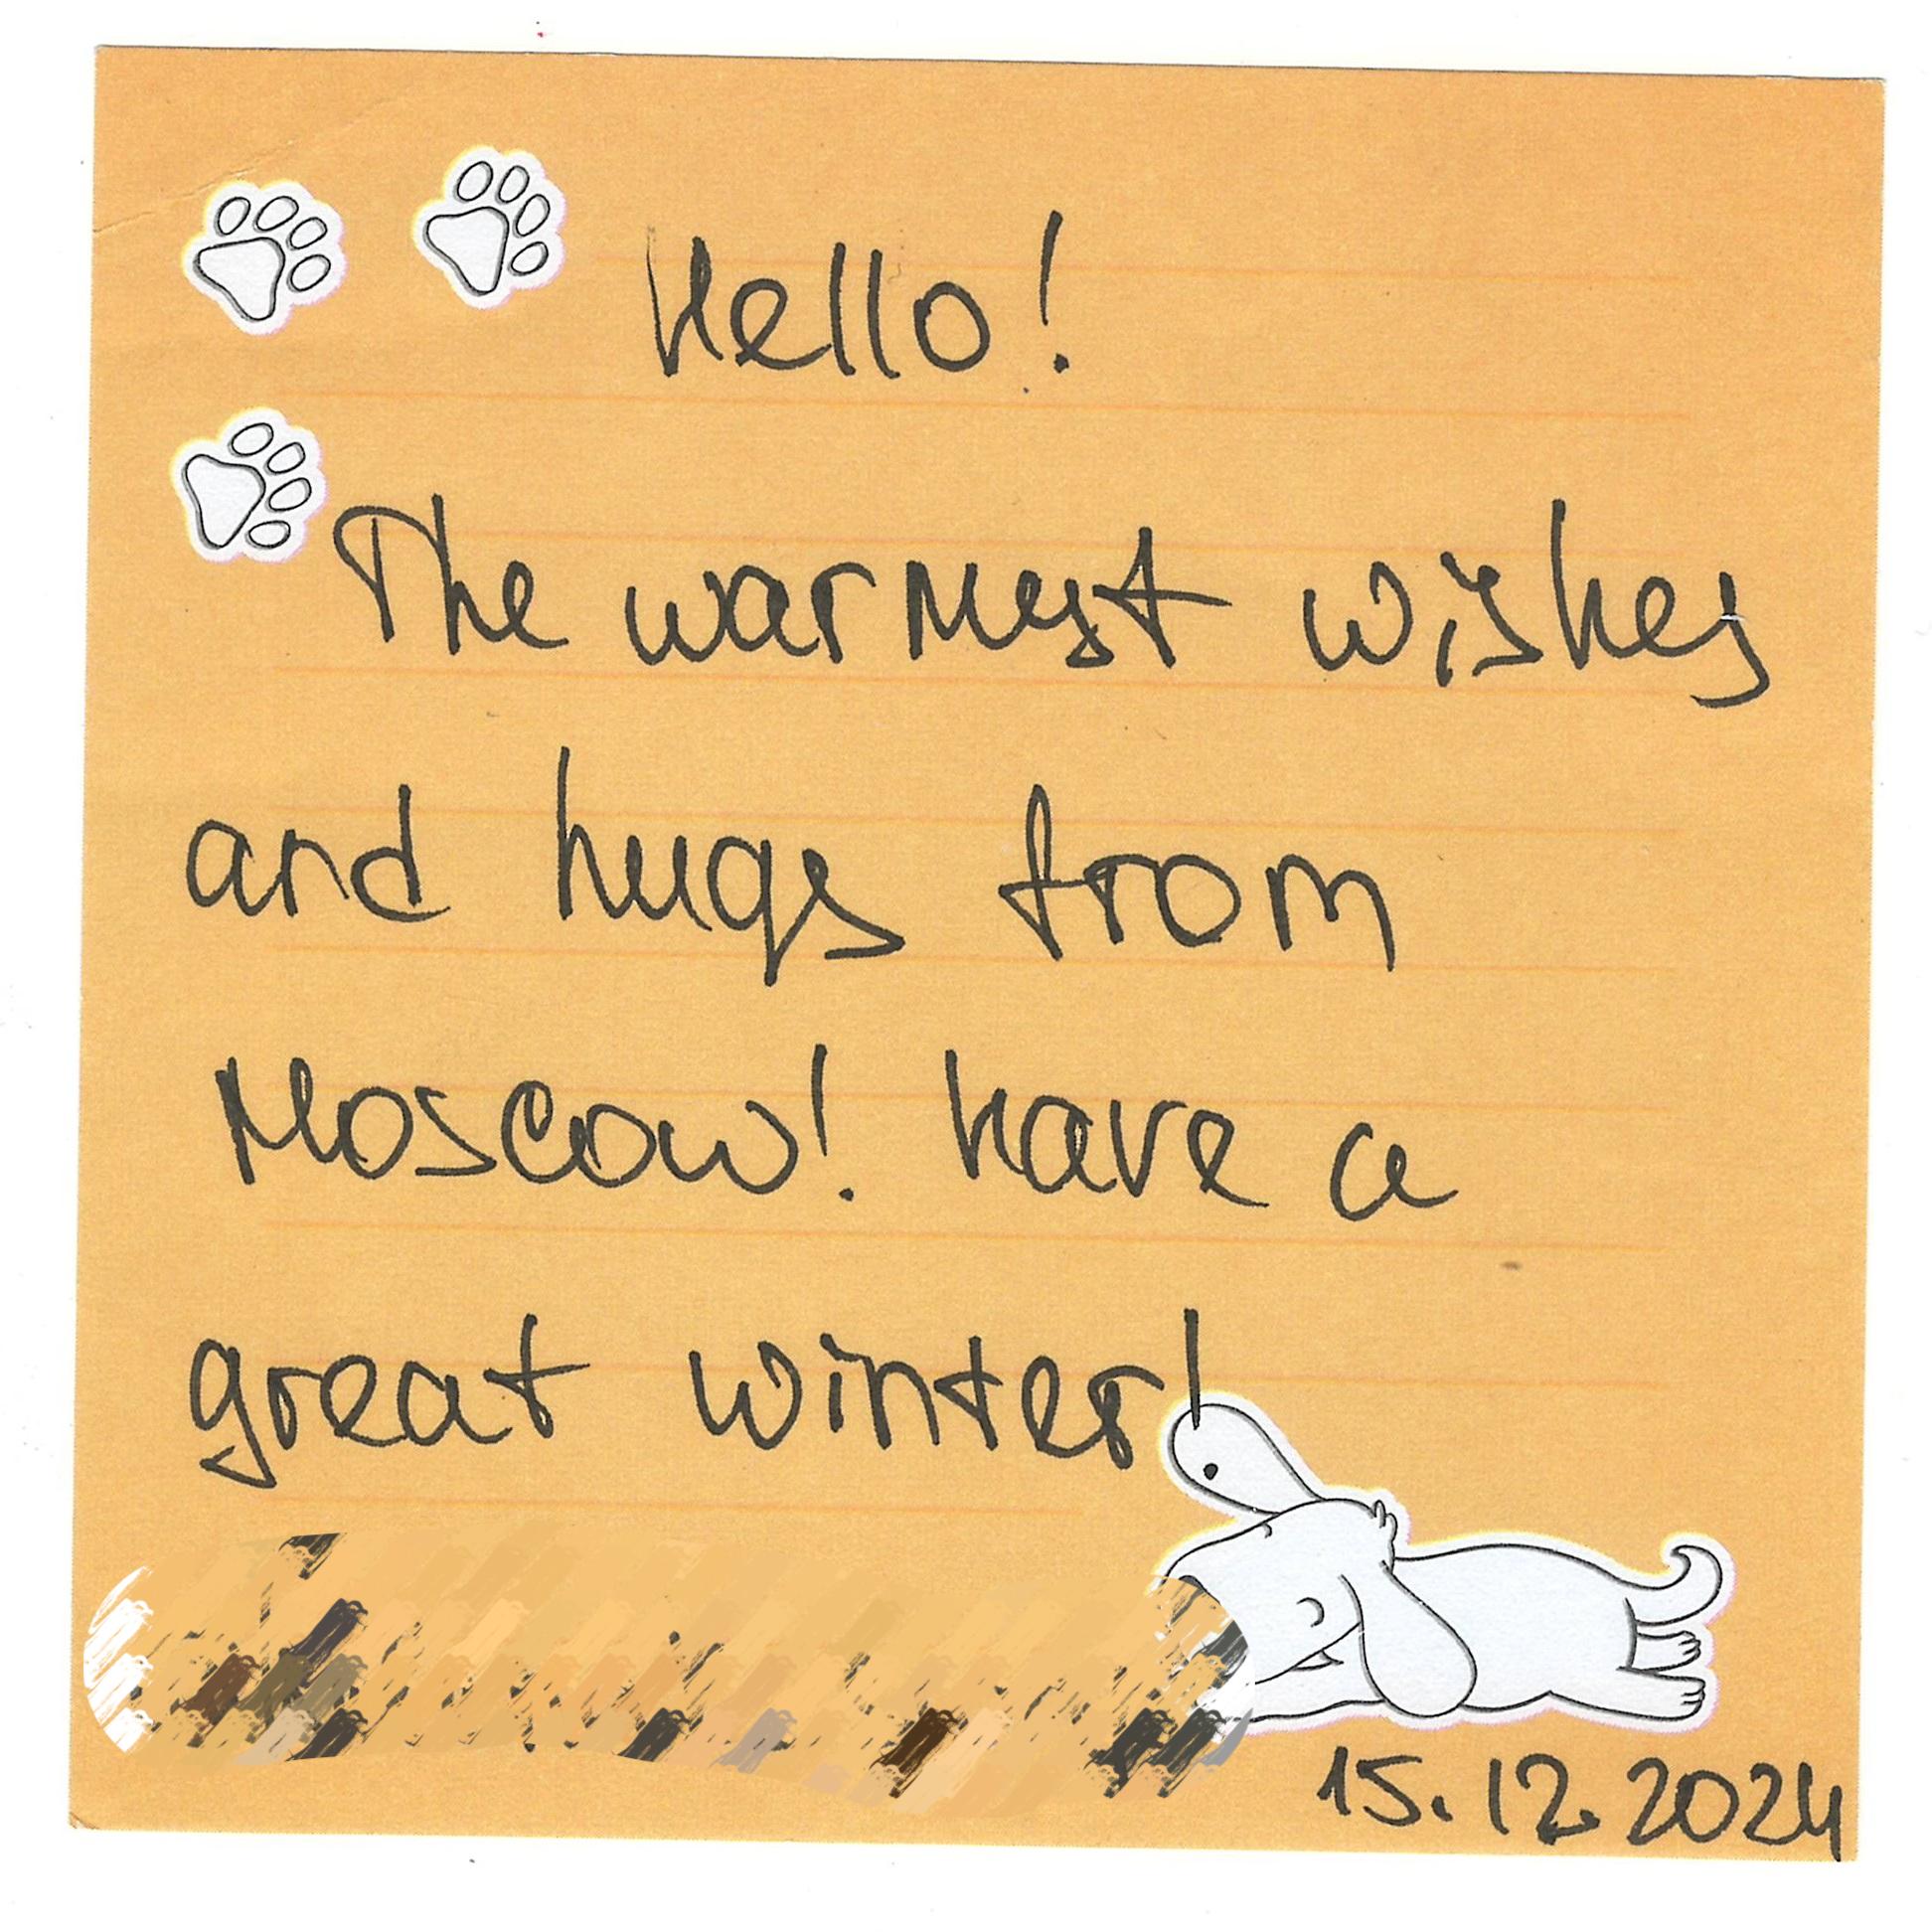 Hello!
The warmest wishes
and hugs from
Moscow! have a
great winter!
15.12.2024